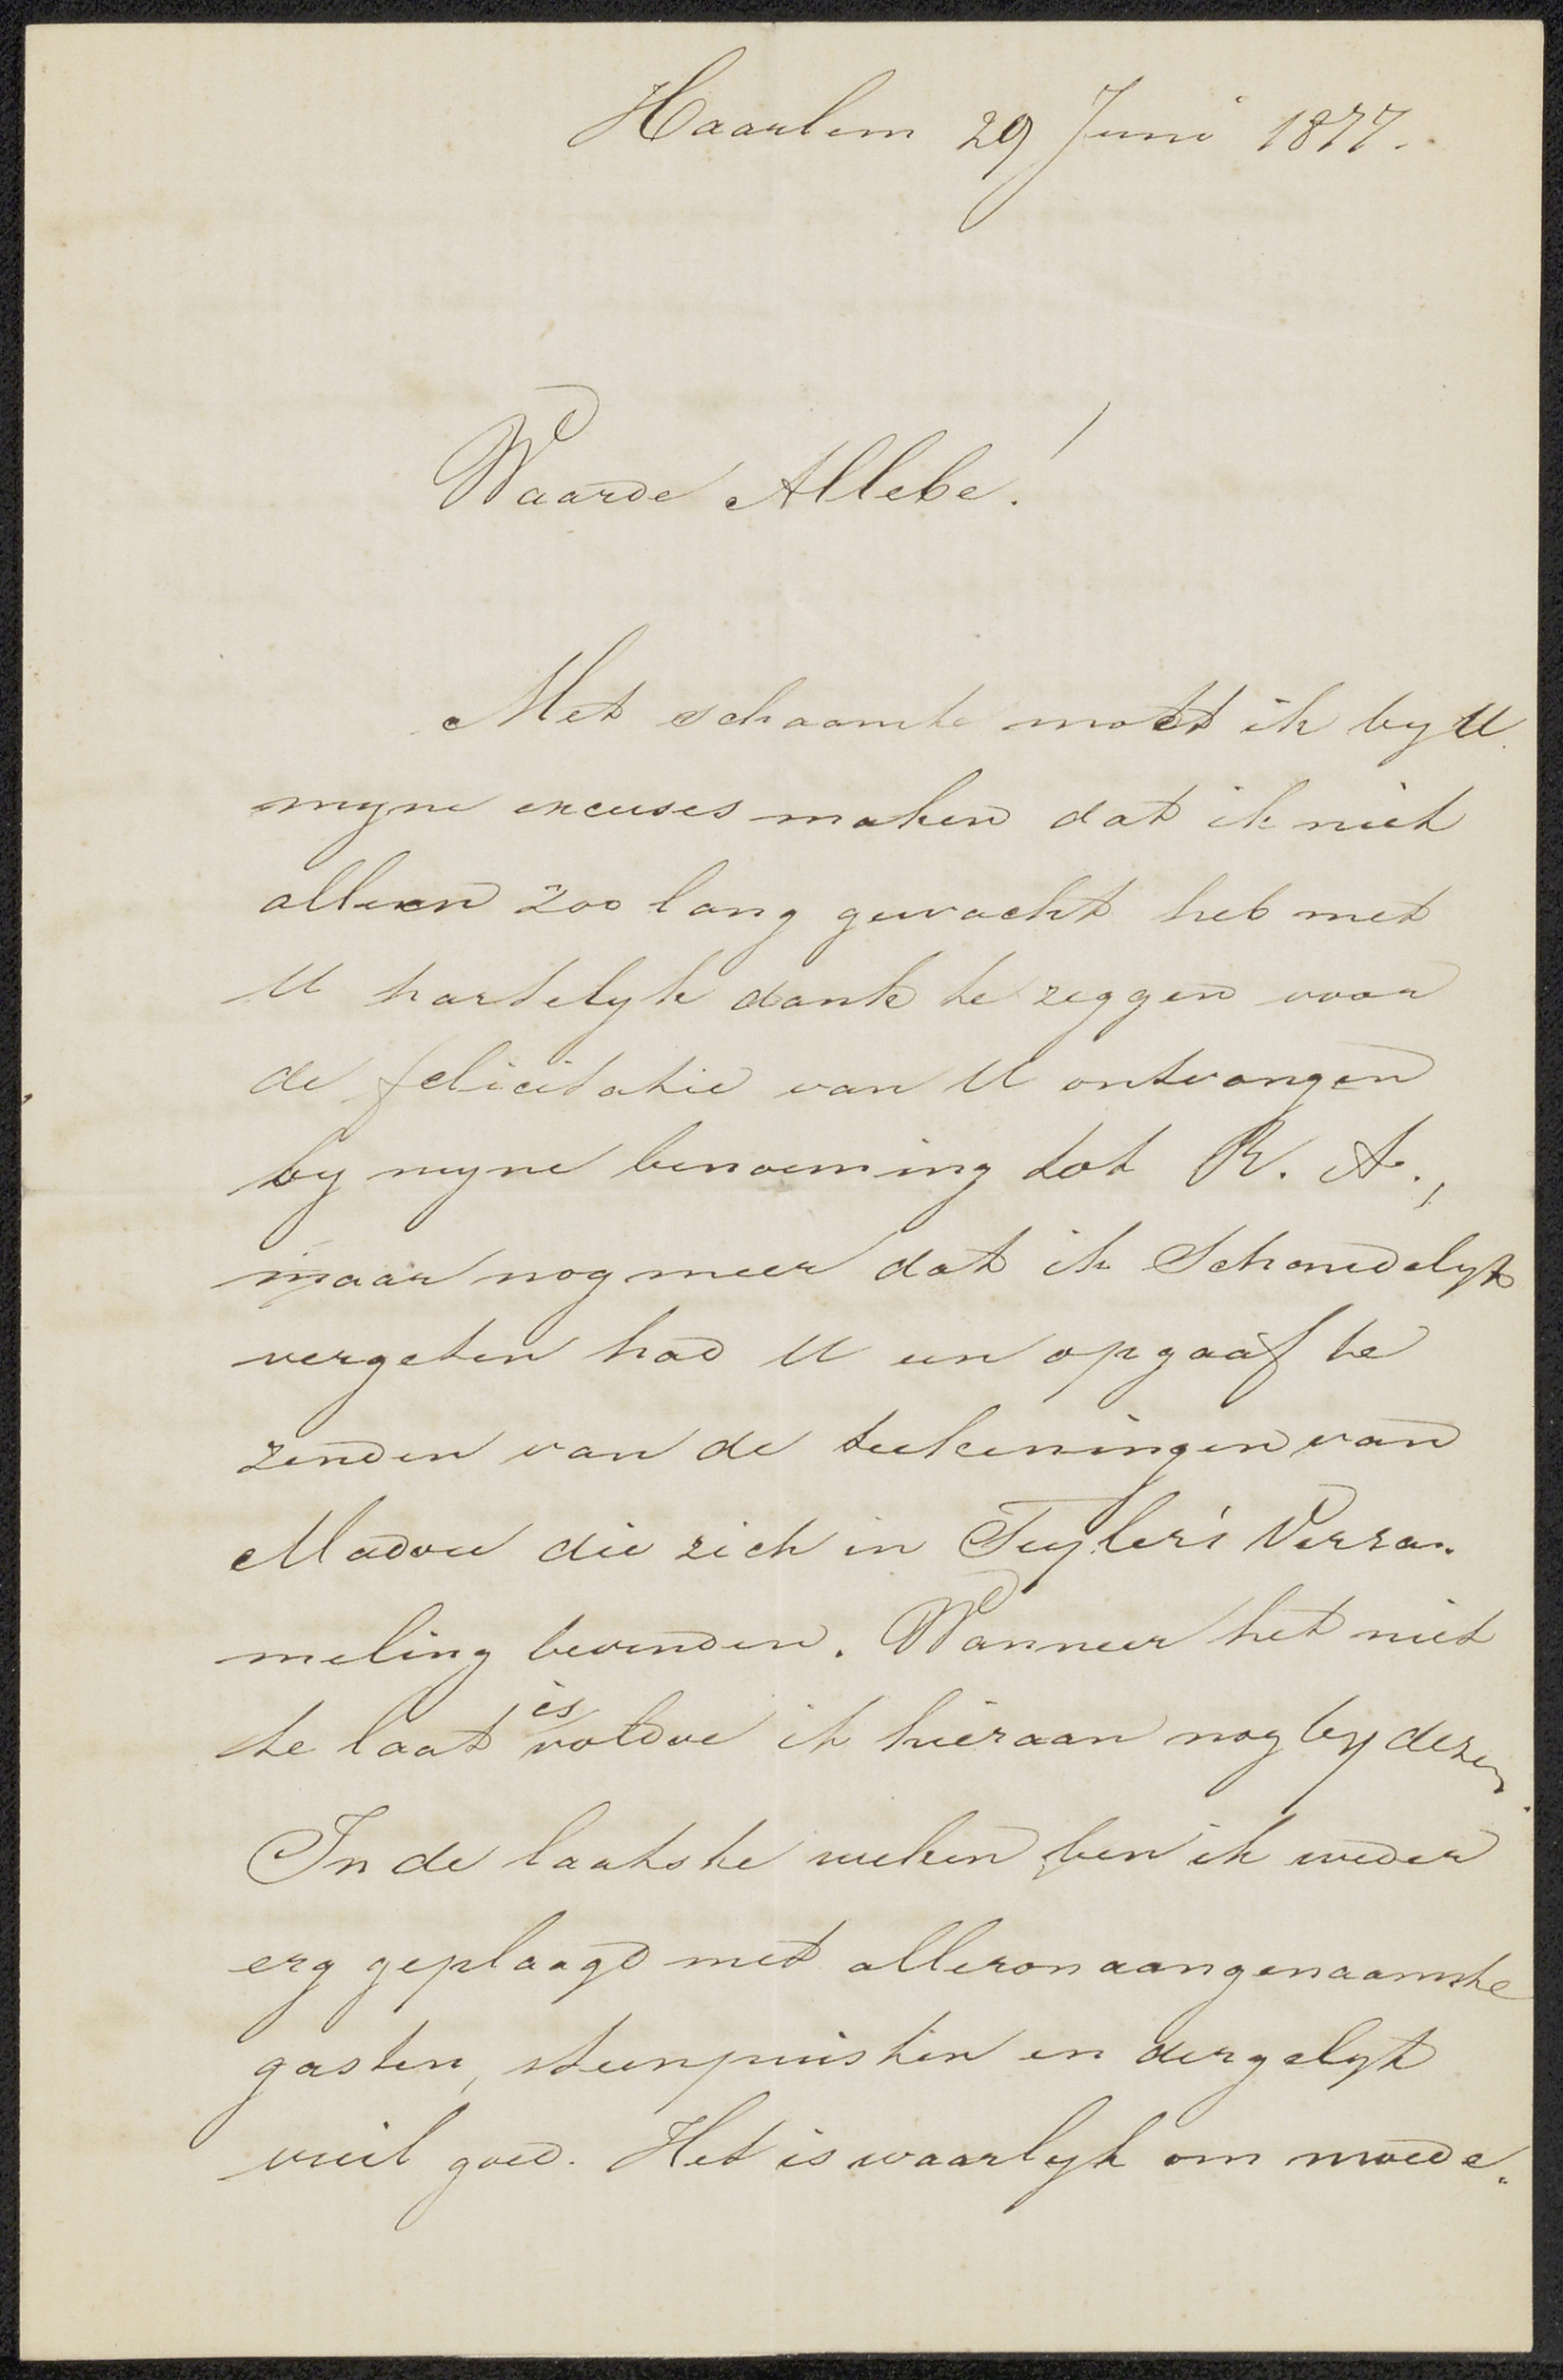 Haarlem 29 Juni 1877.
Waarde Allebe!
Met schaamte moet ik by U
myne excuses maken dat ik niet
alleen zoo lang gewacht heb met
U hartelyk dank te zeggen voor
de felicitatie van U ontvangen
by myne benoeming tot R. A.,
maar nog meer dat ik schandelyk
vergeten had U een opgaaf te
zenden van de teekeningen van
Madou die zich in Teyler's Verza-
meling bevinden. Wanneer het niet
te laat is voldoe ik hieraan nog by dezen.
In de laatste weken ben ik weder
erg geplaagd met alleronaangenaamste
gasten, steenpuisten en dergelyk
vuil goed. Het is waarlyk om moede-